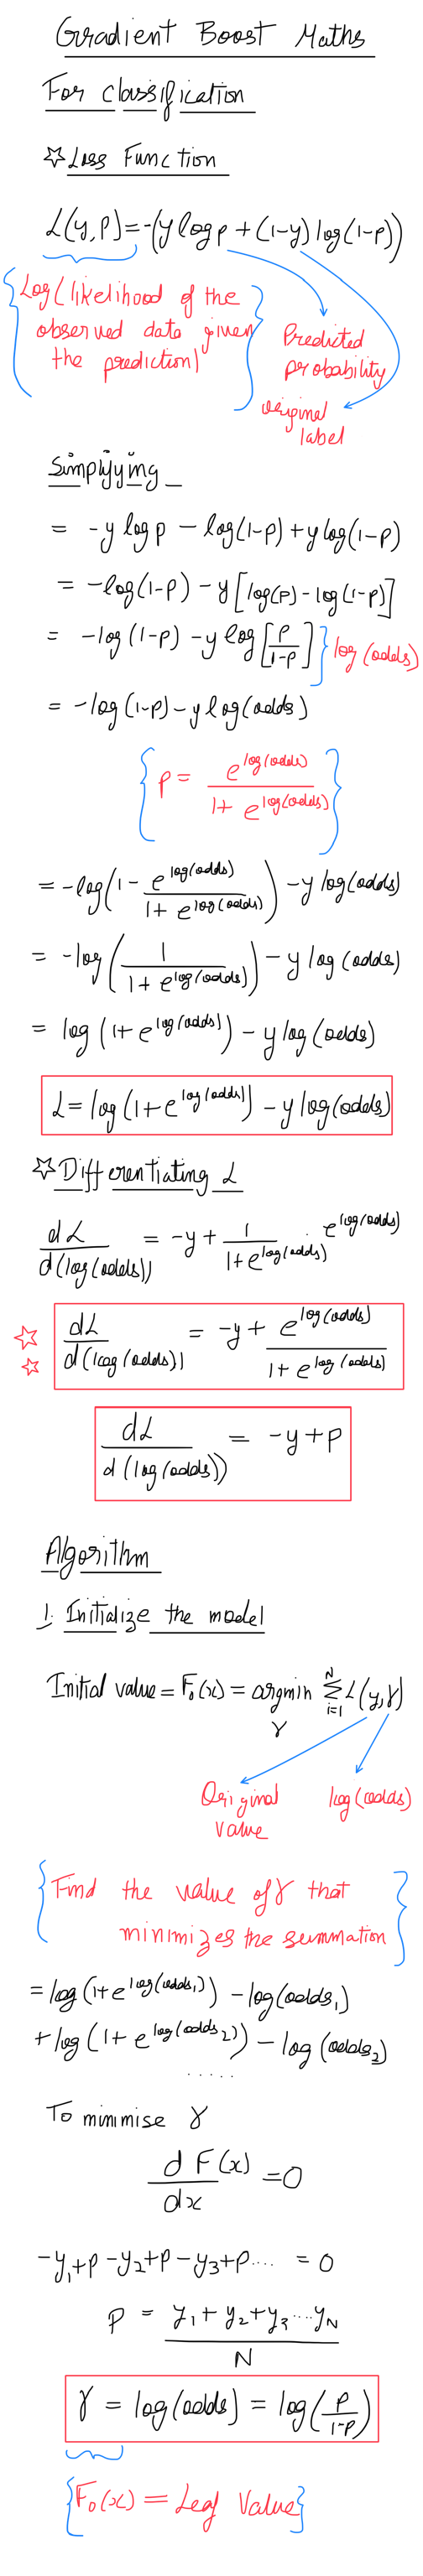 Gradient Boost Maths
For classification
☆ Loss Function
L(y,p) = -(y log p + (1-y) log(1-p))
{Log(likelihood of the
observed data given
the prediction)}
Predicted
probability
original
label
Simplifying
= -y log p - log(1-p) + y log(1-p)
= -log(1-p) - y[log(p) - log(1-p)]
= -log(1-p) - y log[p/(1-p)] } log(odds)
= -log(1-p) - y log(odds)
{p = e^log(odds) / (1 + e^log(odds))}
= -log(1 - e^log(odds) / (1 + e^log(odds))) - y log(odds)
= -log(1 / (1 + e^log(odds))) - y log(odds)
= log(1 + e^log(odds)) - y log(odds)
L = log(1 + e^log(odds)) - y log(odds)
☆ Differentiating L
dL / d(log(odds)) = -y + 1 / (1 + e^log(odds)) e^log(odds)
☆☆ dL / d(log(odds)) = -y + e^log(odds) / (1 + e^log(odds))
dL / d(log(odds)) = -y + p
Algorithm
1. Initialize the model
Initial value = F₀(x) = argmin γ Σ i=1 N L(y,γ)
Original
Value
log(odds)
{Find the value of γ that
minimizes the summation}
= log(1 + e^log(odds₁)) - log(odds₁)
+ log(1 + e^log(odds₂)) - log(odds₂)
.....
To minimise γ
d F(x) / dx = 0
-y₁+p -y₂+p -y₃+p .... = 0
p = (y₁ + y₂ + y₃ ... yN) / N
γ = log(odds) = log(p/(1-p))
{F₀(x) = Leaf Value}